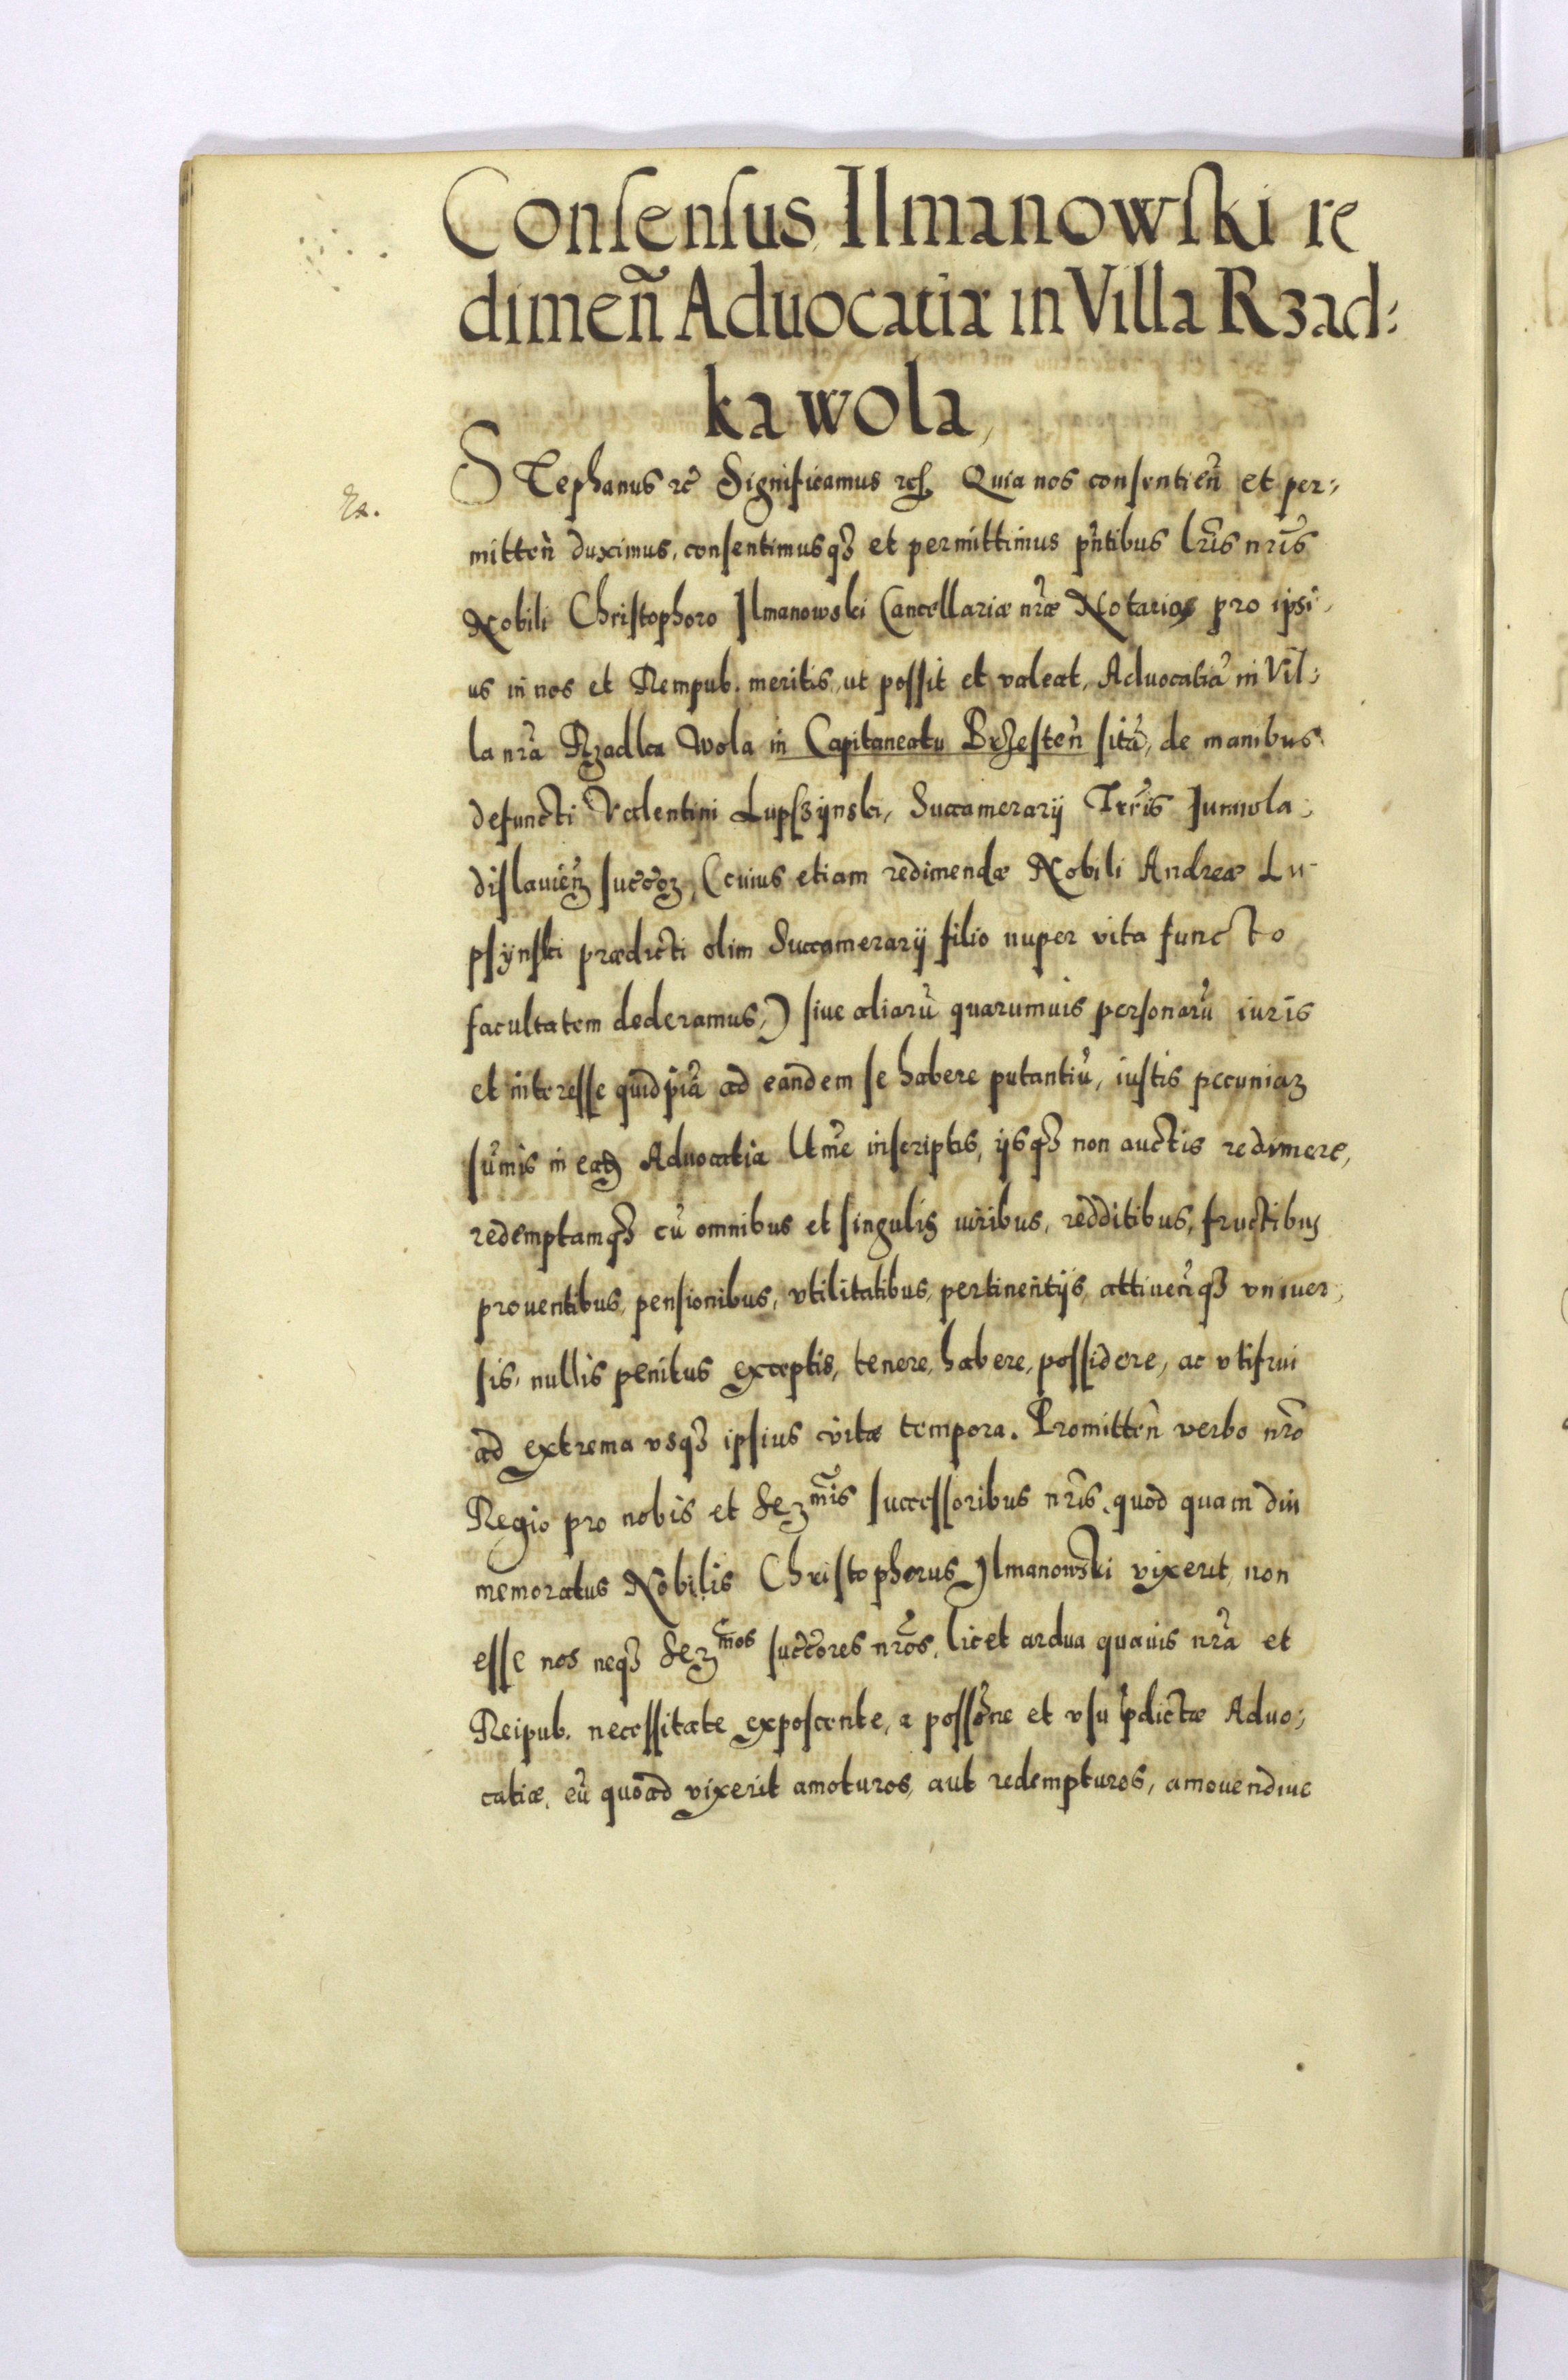 Consensus Ilmanowski re
dimen̄ Aduocatiæ in Villa Rzad:
ka wola,
STephanus etc̃ Significamus etc. Quia nos consentien̄ et per,
mitten̄ duximus, consentimusq₃ et permittimus pñtibus lr̃is nr̃is
Nobili Christophoro Ilmanowski Cancellariæ nr̃æ Notario, pro ipsi,
us in nos et Rempub. meritis, ut possit et valeat, Aduocatiã in Vil:
la nr̃a Rzadka Wola in Capitaneatu Brzesten̄ sitã, de manibus
defuncti Valentini Lupszÿnski, Succamerarij Terr̃is Juniwola,
dislauien̄ succ̃oꝝ, (cuius etiam redimendæ Nobili Andreæ Lu-
psÿnski prædicti olim Succamerarij filio nuper vita functo
facultatem dederamus,) siue aliarũ quarumuis personarũ iuris
et interesse quidpiã ad eandem se habere putantiũ, iustis pecuniaꝝ
sũmis in eaď Aduocatia lt̃ime inscriptis, ijsq₃ non auctis redimere,
redemptamq₃ cũ omnibus et singulis iuribus, redditibus, fructibus
prouentibus, pensionibus, vtilitatibus, pertinentijs, attinen̄q₃ vniuer,
sis, nullis penitus exceptis, tenere, habere, possidere, ac vtifrui
ad extrema vsq₃ ipsius vitæ tempora. Promitten̄ verbo nr̃o
Regio pro nobis et Ser̃mis successoribus nr̃is, quod quam diu
memoratus Nobilis Christophorus Ilmanowski vixerit, non
esse nos neq₃ Ser̃mos succ̃ores nr̃os, licet ardua quauis nr̃a et
Reipub. necessitate exposcente, a poss̃one et vsu p̃dictæ Aduo,
catiæ, eũ quoad vixerit amoturos, aut redempturos, amouendiue